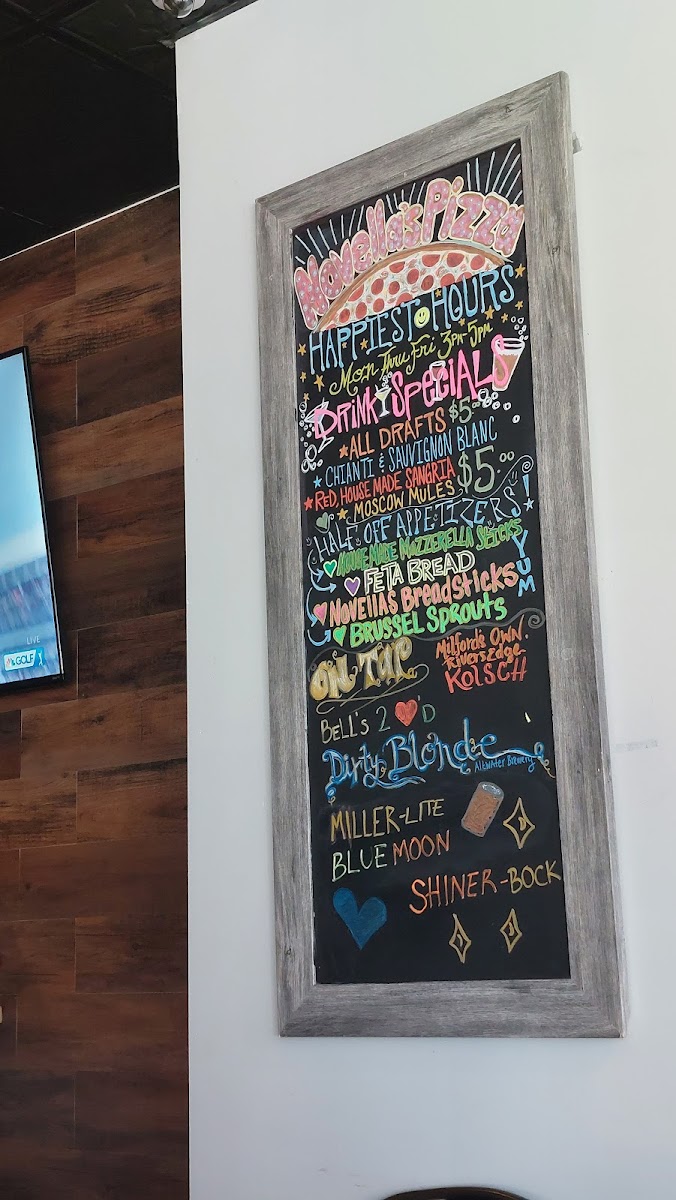 Novella's Pizza
HAPPIEST HOURS
Mon Thru Fri 3PM-5PM
DRINK SPECIALS
ALL DRAFTS $5.00
CHIANTI & SAUVIGNON BLANC
RED, HOUSE MADE SANGRIA $5.00
MOSCOW MULES
HALF OFF APPETIZERS!
HOUSE MADE MOZZERELLA STICKS
FETA BREAD
NOVELLAS BreadSticks
BRUSSEL SPROUTS
YUM
ON TAP
Milford's OWN
Rivers Edge
KOLSCH
BELL'S 2 ❤'D
Dirty Blonde
Atwater Brewery
MILLER-LITE
BLUE MOON
SHINER-BOCK
D
J
J
LIVE
GOLF